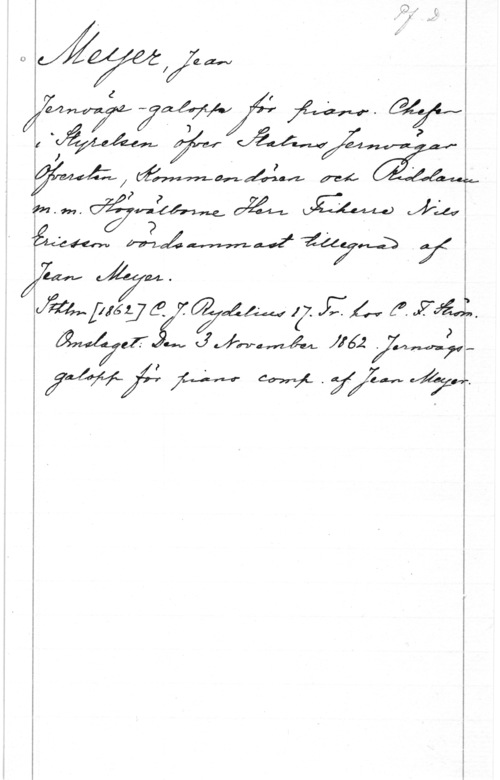 Pf. 2.
Meyer, Jean
Jernvägs-galopp för piano. Chefen
i Styrelsen öfver Statens Jernvägar
Öfversten, Kommendören och Riddaren
m. m. Högvälborne Herr Friherre Nils
Ericsson vördsammast tillegnad af
Jean Meyer.
Sthlm [1862] C. J. Rydelius 17. Tr. hos C. F. Ström.
Omslaget: Den 3 November 1862. Jernvägs-
galopp för piano comp. af Jean Meyer.